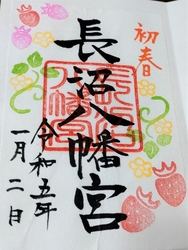 初春
長沼八幡宮
令和五年
一月二日